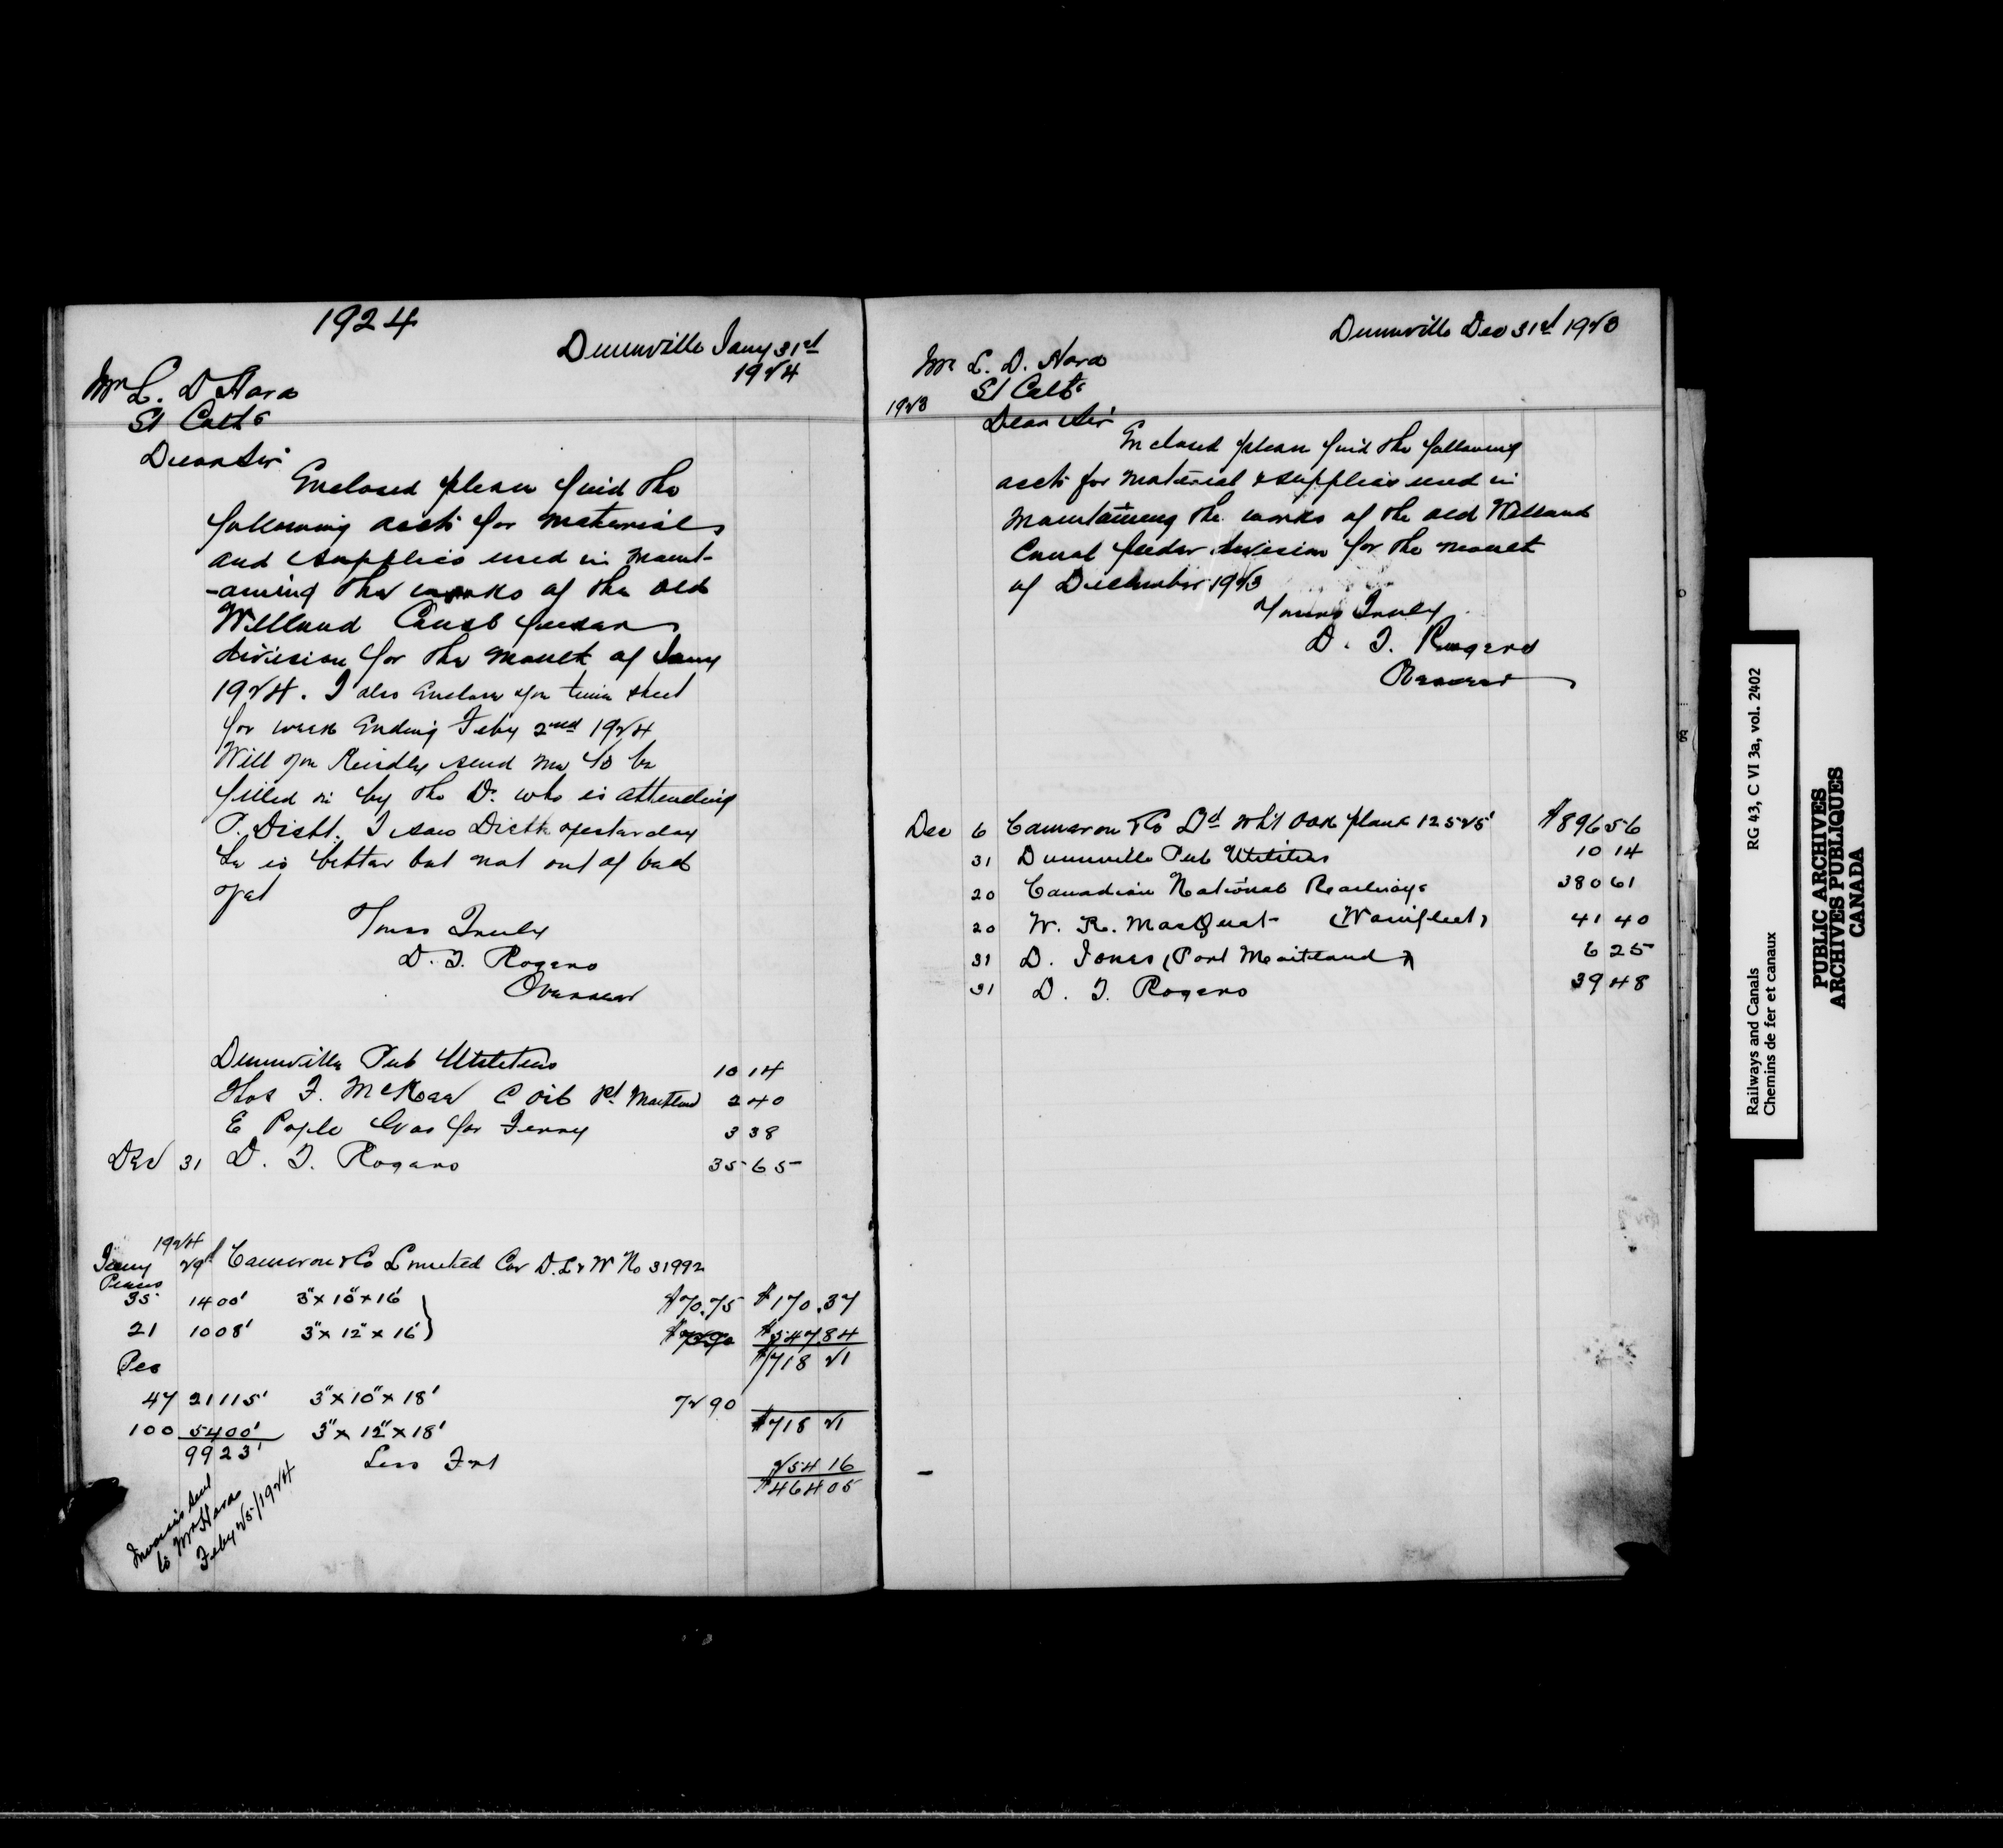 1924
Dunnville Jany 31st
1924
Mr L. D Hara
St Caths
Dear Sir
Enclosed please find the
following accts for materials
and supplies used in maint-
-aining the works of the old
Welland Canal feeder
division for the month of Jany
1924. I also enclose you time sheet
for week Ending Feby 2nd 1924
Will you Kindly send me to be
filled in by the Dr. who is attending
P. Disth. I saw Disth yesterday
he is better but not out of bed
yet
Yours Truly
D. T. Rogers
Overseer
Dunnville Pub Utilities 10 14
Thos F. McKee C Oil Pt Maitland 2 40
E Pople Gas for Ferry 3 38
Dec 31 D. T. Rogers 35 65
1924
Jany 29th Cameron & Co Limited Car D. L & W No 31992
Pieces
35 1400' 3"x 10"x 16' $70.75 $170.37
21 1008' 3"x 12"x 16' $547.84
Pcs $718 21
47 21115' 3"x 10"x 18' 72 90
100 5400' 3"x 12"x 18' $718 21
9923' Less Frt 254 16
$464 05
Invoices sent
to Mr Hara
Feby 25/1924
Dunnville Dec 31st 1923
Mr L. D. Hara
St Caths
1923
Dear Sir
Enclosed please find the following
accts for material & supplies used in
maintaining the works of the old Welland
Canal feeder division for the month
of December 1923
Yours Truly
D. T. Rogers
Overseer
Dec 6 Cameron & Co Ltd Wht Oak plank 12525' $896 56
31 Dunnville Pub Utilities 10 14
20 Canadian National Railways 380 61
20 W. R. MacQuat (Wainfleet) 41 40
31 D. Jones (Port Maitland) 6 25
31 D. T. Rogers 39 48
Railways and Canals RG 43, C VI 3a, vol. 2402
Chemins de fer et canaux
PUBLIC ARCHIVES
ARCHIVES PUBLIQUES
CANADA